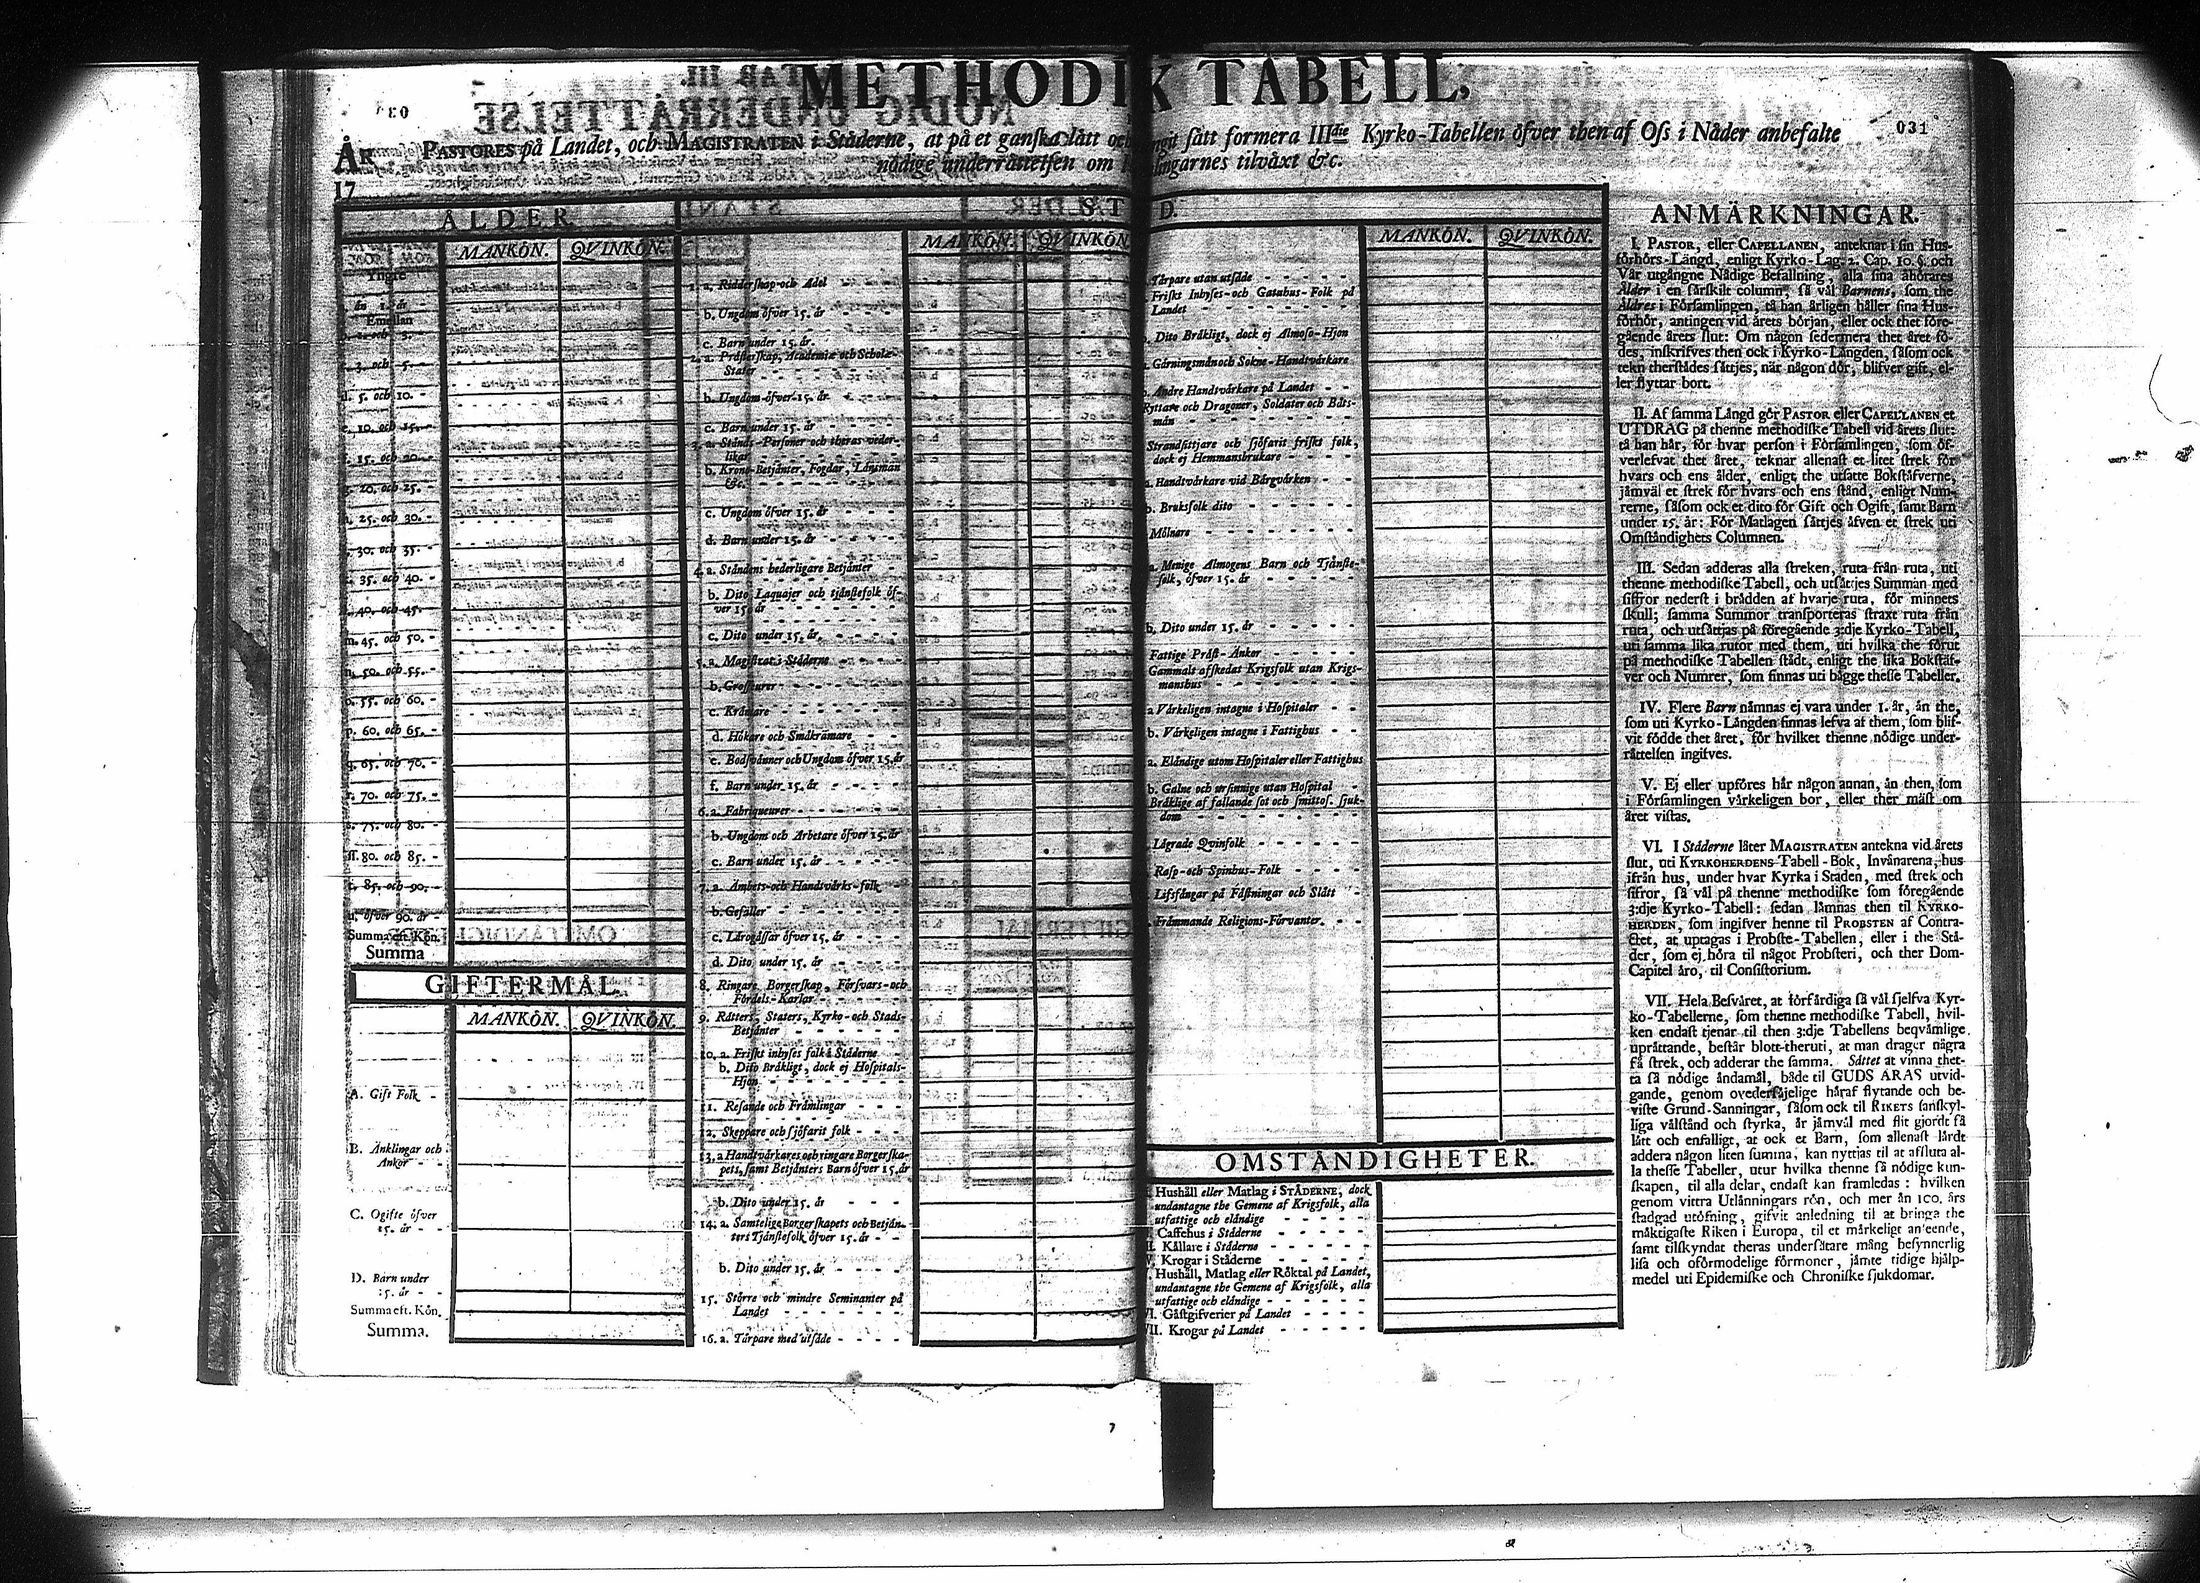 METHODIK TABELL,
031
ÅR
17
PASTORES på Landet, och MAGISTRATEN i Städerne, at på et ganska lätt och sätt formera IIIdie Kyrko-Tabellen öfver then af Oss i Nåder anbefalte
nödige underrättelsen om tilväxt &c.
ÅLDER.
MANKÖN. QVINKÖN.
Yngre
än 1. år
Emellan
3. och 5.
d. 5. och 10.
e. 10. och 15.
15. och 20.
20. och 25.
25. och 30.
30. och 35.
35. och 40.
40. och 45.
m. 45. och 50.
n. 50. och 55.
o. 55. och 60.
p. 60. och 65.
q. 65. och 70.
r. 70. och 75.
s. 75. och 80.
ss. 80. och 85.
t. 85. och 90.
u. öfver 90. år
Summa eft. Kön.
Summa
GIFTERMÅL.
MANKÖN. QVINKÖN.
A. Gift Folk
B. Änklingar och
Änkor
C. Ogifte öfver
15. år
D. Barn under
15. år
Summa eft. Kön.
Summa.
MANKÖN. QVINKÖN
1. a. Ridderskap och Adel
b. Ungdom öfver 15. år
c. Barn under 15. år
2. a. Prästerskap, Academiæ och Scholæ-
Stater
b. Ungdom öfver 15. år
c. Barn under 15. år
3. a. Stånds-Personer och theras veder-
likar
b. Krono-Betjänter, Fogdar, Länsmän
&c.
c. Ungdom öfver 15. år
d. Barn under 15. år
4. a. Ståndens hederligare Betjänter
b. Dito Laquajer och tjänstefolk öf-
ver 15. år
c. Dito under 15. år
5. a. Magistrat i Städerne
b. Grosseurer
c. Krämare
d. Hökare och Småkrämare
e. Bodsvänner och Ungdom öfver 15. år
f. Barn under 15. år
6. a. Fabriqueurer
b. Ungdom och Arbetare öfver 15. år
c. Barn under 15. år
7. a. Ämbets- och Handtvärks-folk
b. Gesäller
c. Lärogåssar öfver 15. år
d. Dito under 15. år
8. Ringare Borgerskap, Försvars- och
Fördels-Karlar
9. Rätters, Staters, Kyrko- och Stads-
Betjänter
10. a. Friskt inhyses folk i Städerne
b. Dito Bräkligt, dock ej Hospitals-
Hjon
11. Resande och Främlingar
12. Skeppare och sjöfarit folk
13. a Handtvärkares och ringare Borgerska-
pets, samt Betjänters Barn öfver 15. år
b. Dito under 15. år
14. a. Samtelige Borgerskapets och Betjän-
ters Tjänstefolk öfver 15. år
b. Dito under 15. år
15. Större och mindre Seminanter på
Landet
16. a. Tårpare med utsäde
MANKÖN. QVINKÖN.
Tårpare utan utsäde
Friskt Inhyses- och Gatuhus-Folk på
Landet
Dito Bräkligt, dock ej Almoso-Hjon
Gärningsmän och Sokne-Handtvärkare
Andre Handtvärkare på Landet
Ryttare och Dragoner, Soldater och Båts-
män
Strandsittjare och sjöfarit friskt folk,
dock ej Hemmansbrukare
a. Handtvärkare vid Bärgvärken
b. Bruksfolk dito
Mölnare
a. Menige Almogens Barn och Tjänste-
folk, öfver 15. år
b. Dito under 15. år
Fattige Präst-Änkor
Gammalt afskedat Krigsfolk utan Krigs-
manshus
a Värkeligen intagne i Hospitaler
b. Värkeligen intagne i Fattighus
a. Eländige utom Hospitaler eller Fattighus
b. Galne och ursinnige utan Hospital
Bräklige af fallande sot och smittos. sjuk-
dom
Lägrade Qvinfolk
Rasp- och Spinhus-Folk
Lifsfångar på Fästningar och Slått
Främmande Religions-Förvanter.
OMSTÄNDIGHETER.
Hushåll eller Matlag i STÄDERNE, dock
undantagne the Gemene af Krigsfolk, alla
utfattige och eländige
Caffehus i Städerne
Källare i Städerne
Krogar i Städerne
Hushåll, Matlag eller Röktal på Landet,
undantagne the Gemene af Krigsfolk, alla
utfattige och eländige
VI. Gästgifverier på Landet
VII. Krogar på Landet
ANMÄRKNINGAR.
I. PASTOR, eller CAPELLANEN, anteknar i sin Hus-
förhörs-Längd, enligt Kyrko-Lag. 2. Cap. 10. §. och
Vår utgångne Nådige Befallning, alla sina åhörares
Ålder i en särskilt column, så väl Barnens, som the
Äldres i Församlingen, tå han årligen håller sina Hus-
förhör, antingen vid årets början, eller ock thet före-
gående årets slut: Om någon sedermera thet året fö-
des, inskrifves then ock i Kyrko-Längden, såsom ock
tekn therstädes sättjes, när någon dör, blifver gift, el-
ler flyttar bort.
II. Af samma Längd gör PASTOR eller CAPELLANEN et
UTDRAG på thenne methodiske Tabell vid årets slut:
tå han här, för hvar person i Församlingen, som öf-
verlefvat thet året, teknar allenast et litet strek för
hvars och ens ålder, enligt the utsatte Bokstäfverne,
jämväl et strek för hvars och ens stånd, enligt Num-
rerne, såsom ock et dito för Gift och Ogift, samt Barn
under 15. år: För Matlagen sättjes äfven et strek uti
Omständighets Columnen.
III. Sedan adderas alla streken, ruta från ruta, uti
thenne methodiske Tabell, och utsättjes Summan med
siffror nederst i brädden af hvarje ruta, för minnets
skull; samma Summor transporteras straxt ruta från
ruta, och utsättjas på föregående 3:dje Kyrko-Tabell,
uti samma lika rutor med them, uti hvilka the förut
på methodiske Tabellen städt, enligt the lika Bokstäf-
ver och Numrer, som finnas uti bägge thesse Tabeller.
IV. Flere Barn nämnas ej vara under 1. år, än the,
som uti Kyrko-Längden finnas lefva af them, som blif-
vit födde thet året, för hvilket thenne nödige under-
rättelsen ingifves.
V. Ej eller upföres här någon annan, än then, som
i Församlingen värkeligen bor, eller ther mäst om
året vistas.
VI. I Städerne låter MAGISTRATEN antekna vid årets
slut, uti KYRKOHERDENS Tabell-Bok, Invånarena, hus
ifrån hus, under hvar Kyrka i Staden, med strek och
siffror, så väl på thenne methodiske som föregående
3:dje Kyrko-Tabell: sedan lämnas then til KYRKO-
HERDEN, som ingifver henne til PROBSTEN af Contra-
ctet, at uptagas i Probste-Tabellen, eller i the Stä-
der, som ej höra til något Probsteri, och ther Dom-
Capitel äro, til Consistorium.
VII. Hela Besväret, at förfärdiga så väl sjelfva Kyr-
ko-Tabellerne, som thenne methodiske Tabell, hvil-
ken endast tjenar til then 3:dje Tabellens beqvämlige
uprättande, består blott theruti, at man drager några
få strek, och adderar the samma. Sättet at vinna thet-
ta så nödige ändamål, både til GUDS ÄRAS utvid-
gande, genom ovedersäjelige häraf flytande och be-
viste Grund-Sanningar, såsom ock til RIKETS sanskyl-
liga välstånd och styrka, är jämväl med flit gjordt så
lätt och enfalligt, at ock et Barn, som allenast lärdt
addera någon liten summa, kan nyttjas til at afsluta al-
la thesse Tabeller, utur hvilka thenne så nödige kun-
skapen, til alla delar, endast kan framledas: hvilken
genom vittra Utlänningars rön, och mer än 100. års
stadgad utöfning, gifvit anledning til at bringa the
mäktigaste Riken i Europa, til et märkeligt anseende,
samt tilskyndat theras undersåtare mång besynnerlig
lisa och oförmodelige förmoner, jämte tidige hjälp-
medel uti Epidemiske och Chroniske sjukdomar.